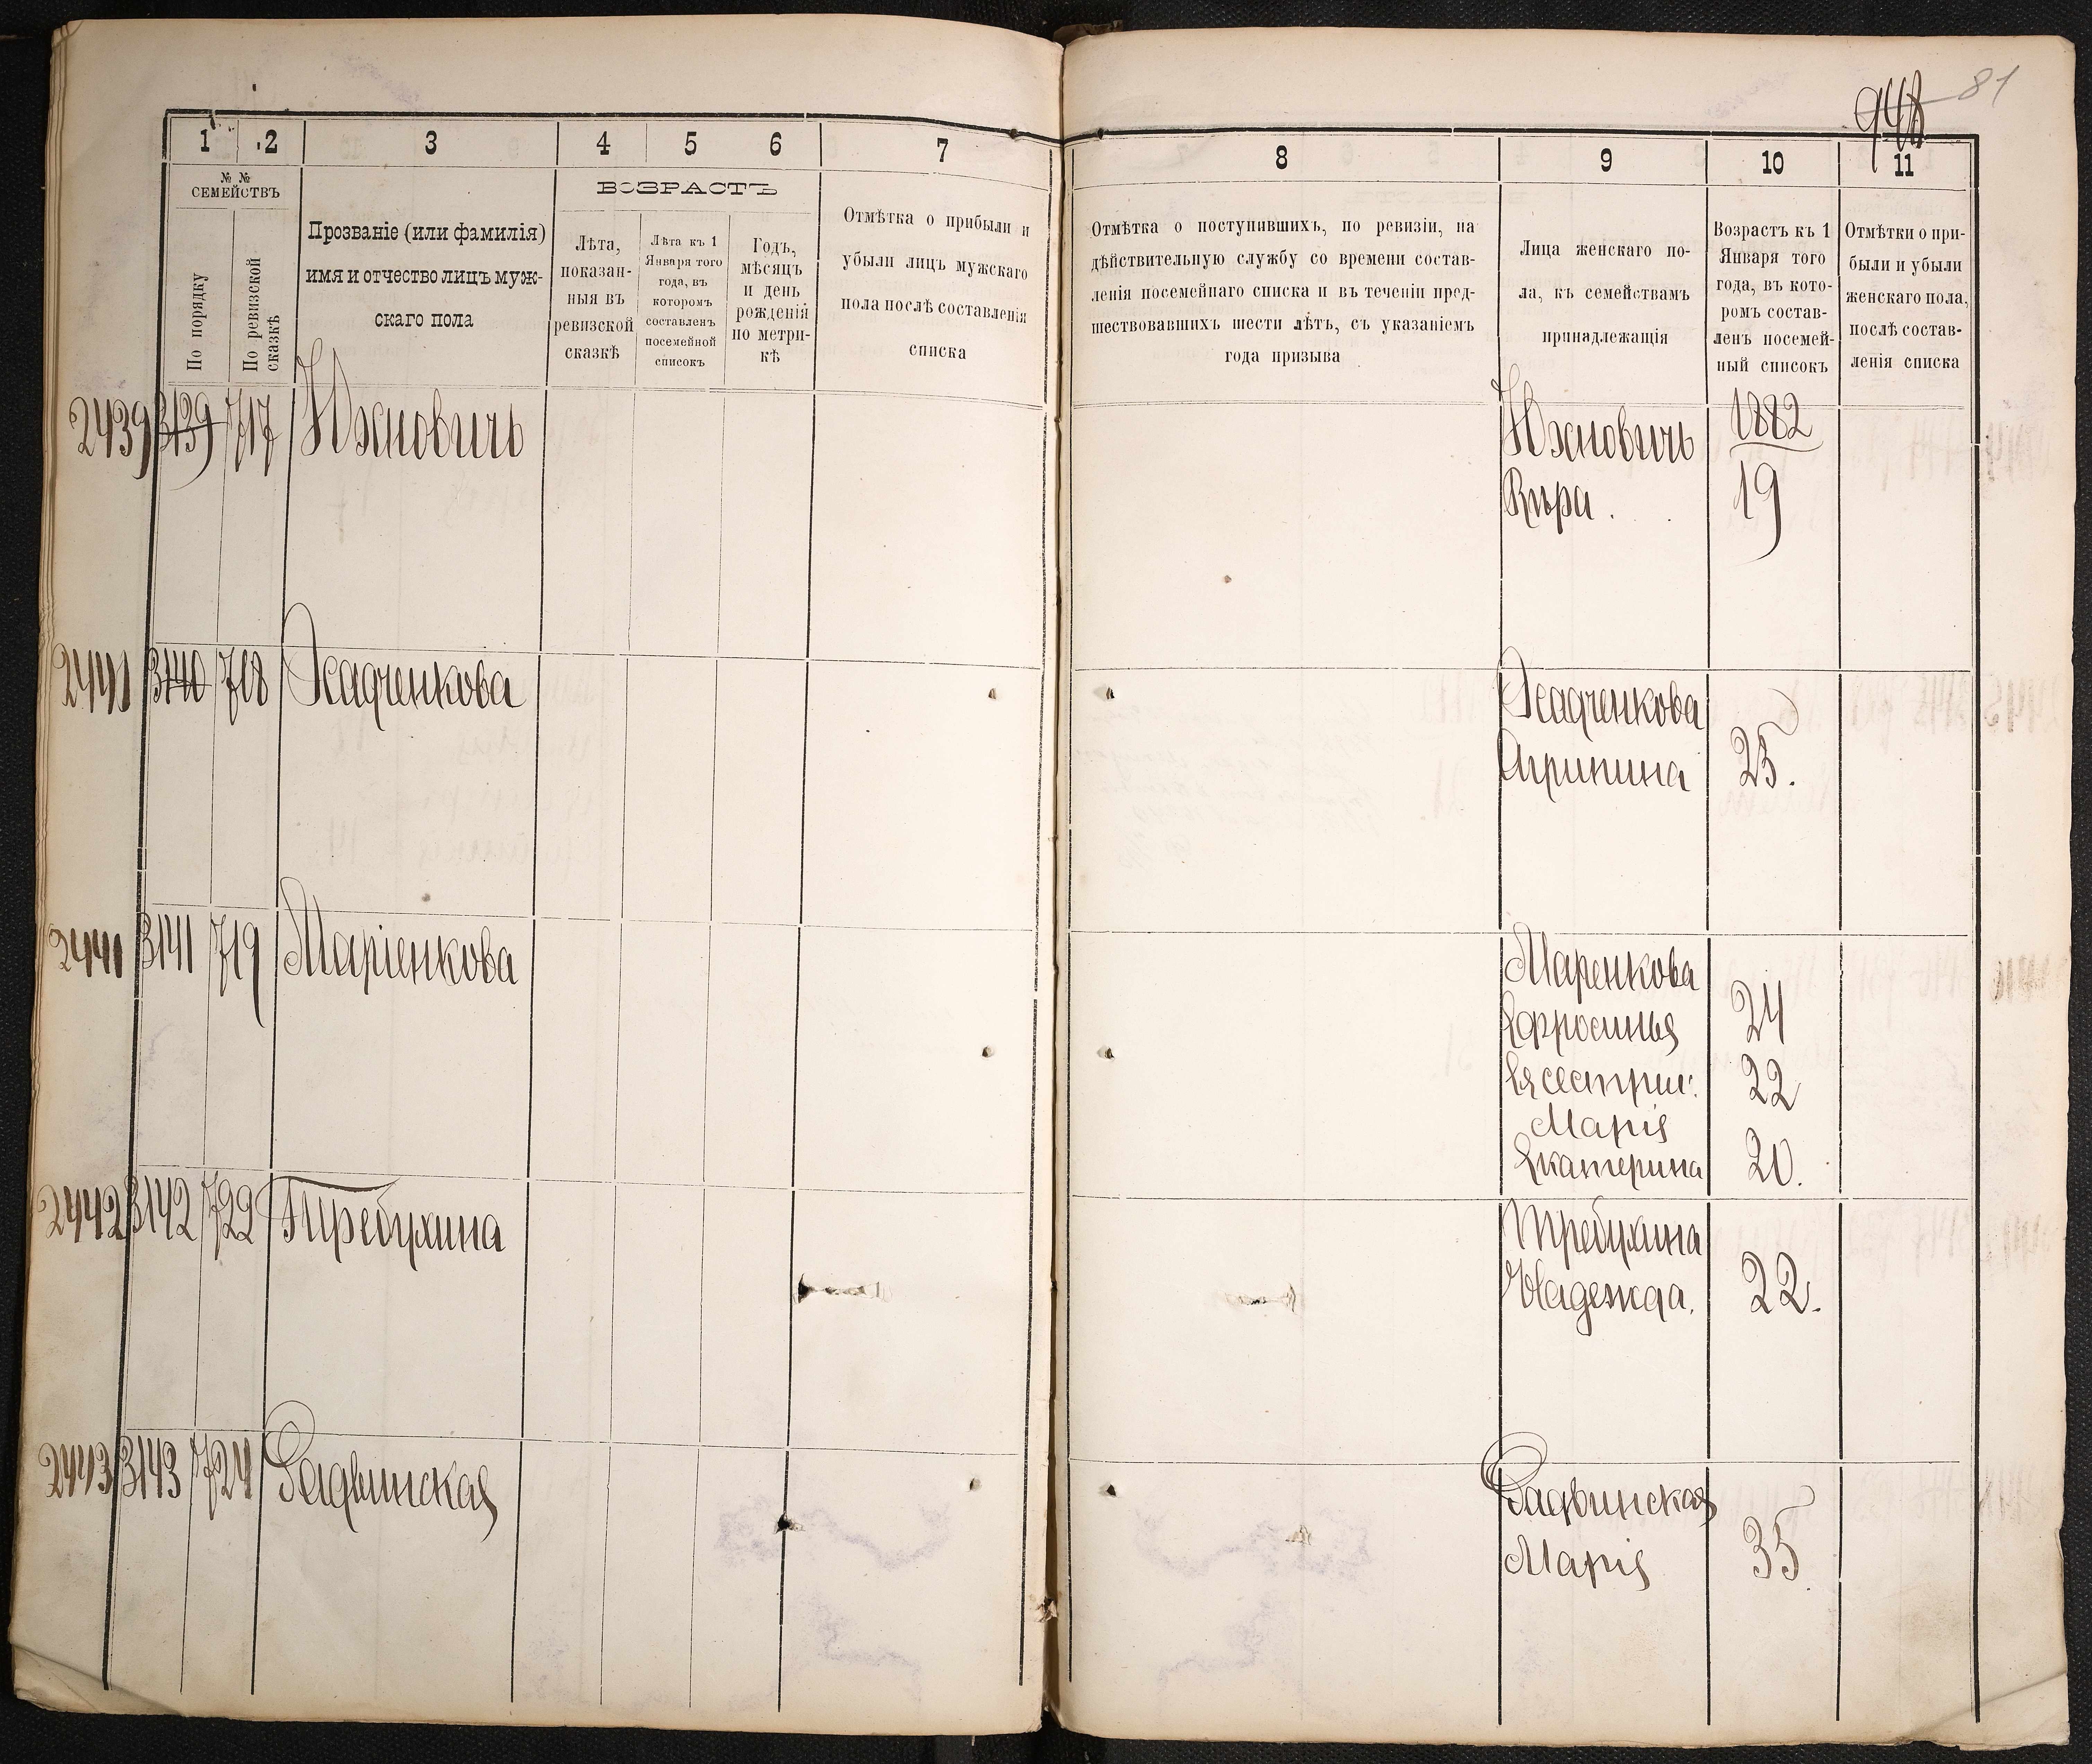 81
948
1 2 3 4 5 6 7
№ №
СЕМЕЙСТВЪ
По порядку
По ревизской
сказкѣ
Прозваніе (или фамилія)
имя и отчество лицъ муж-
скаго пола
ВОЗРАСТЪ
Лѣта,
показан-
ныя въ
ревизской
сказкѣ
Лѣта къ 1
Января того
года, въ
котором
составленъ
посемейной
список
Годъ,
мѣсяцъ
и день
рожденія
по метри-
кѣ
Отмѣтка о прибыли и
убыли лицъ мужскаго
пола послѣ составленія
списка
2439 3139 717 Юхновичъ
3140 718
2441 3141 719 Маріенкова
2442 3142 722 Требухина
2443 3143 724 Радвинская
8 9 10 11
Отмѣтка о поступившихъ, по ревизіи, на
дѣйствительную службу со времени состав-
ленія посемейнаго списка и въ теченіи пред-
шествовавшихъ шести лѣтъ, съ указаніемъ
года призыва
Лица женскаго по-
ла, къ семействамъ
принадлежащія
Возрастъ къ 1
Января того
года, въ кото-
ромъ состав-
ленъ посемей-
ный списокъ
Отмѣтки о при-
были и убыли
женскаго пола,
послѣ состав-
ленія списка
Юхновичъ 1882
Вѣра. 19
Агрипина 25.
Маренкова
Ефросинья 24
Ея сестры: 22
Марія
Екатерина 20.
Требухина
Надежда. 22.
Радвинская
Марія 35